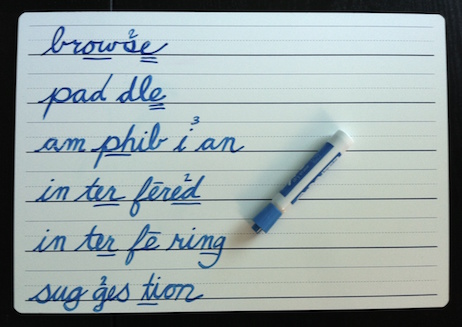 browse
pad dle
am phib i an
in ter fēred
in ter fē ring
sug ges tion